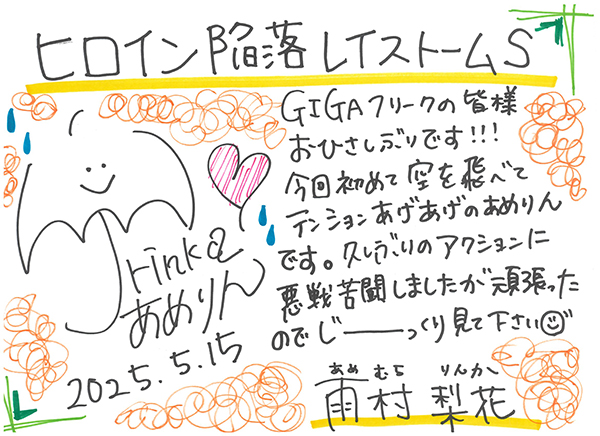 ヒロイン陥落レイストームS
GIGAフリークの皆様
おひさしぶりです!!!
今回初めて空を飛べて
テンションあげあげのあめりん
です。久しぶりのアクションに
悪戦苦闘しましたが頑張った
のでじーーっくり見て下さい
rinka
あめりん
2025.5.15
あめ むら りんか
雨村 梨花